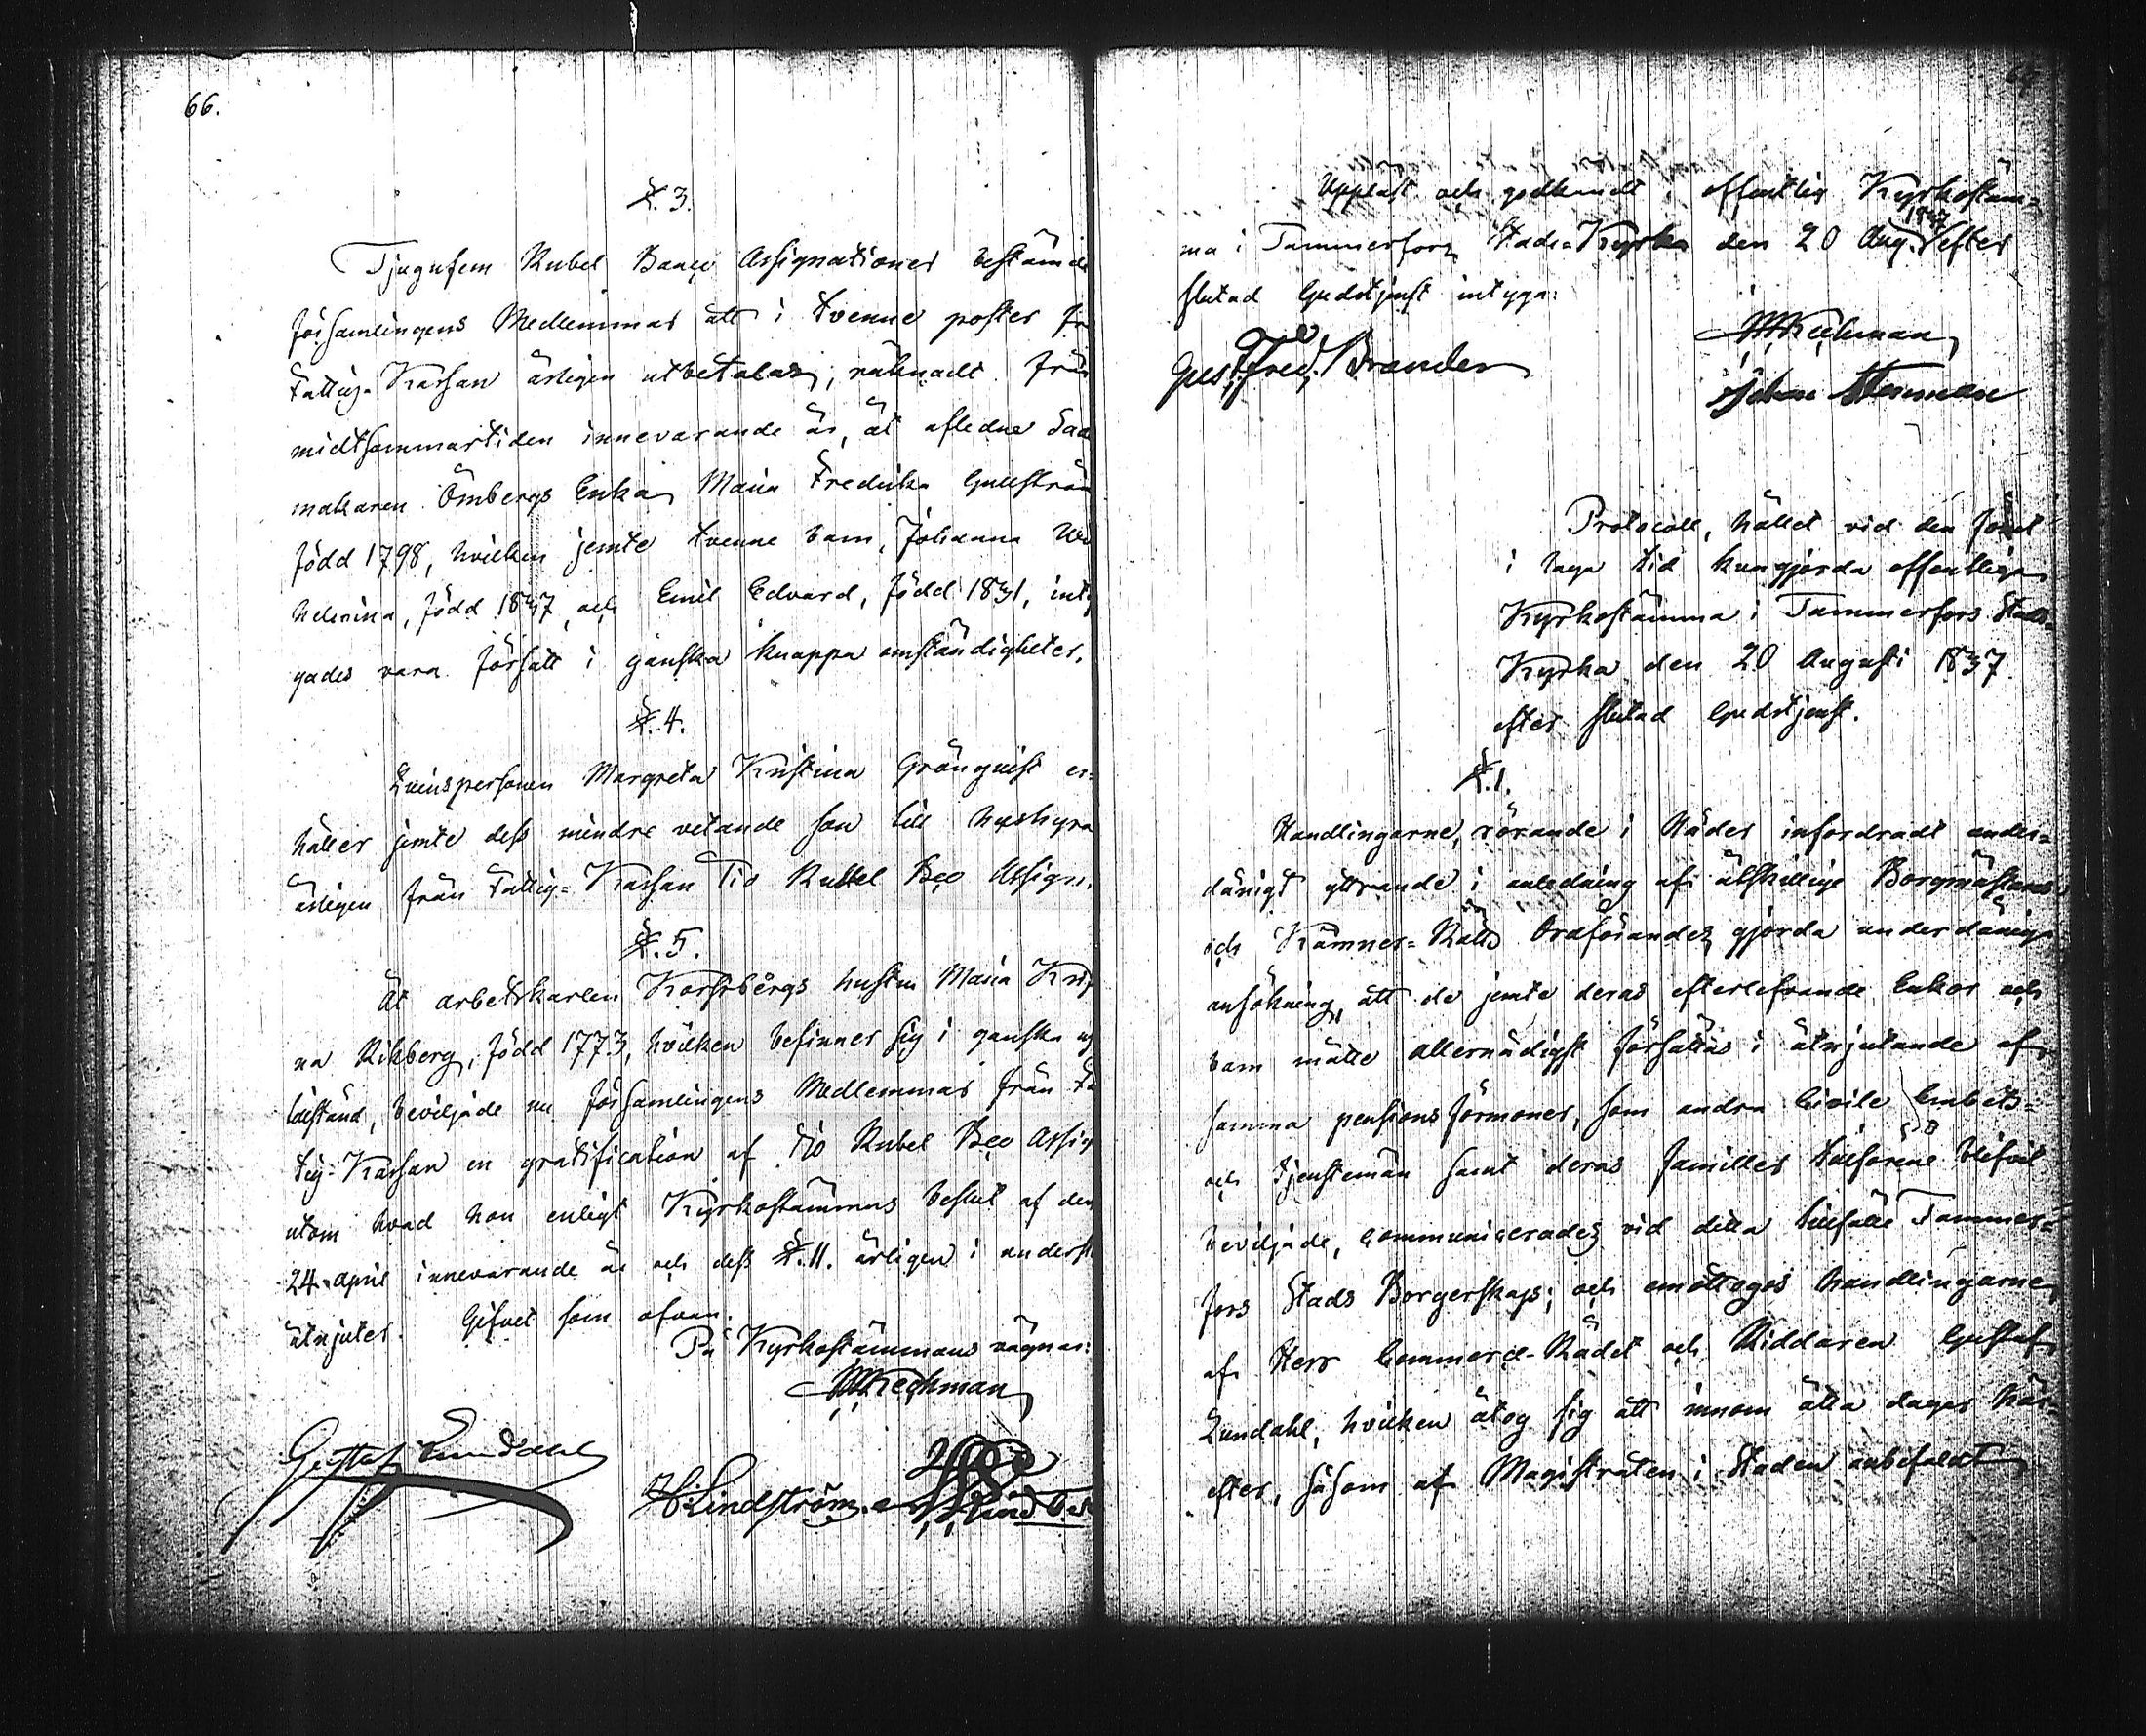 66.
§. 3.
Tjugufem Rubel Banco Assignationer bestämde
församlingens Medlemmar att i tvenne poster fr
Fattig-Kassan årligen utbetalas, räknadt från
midtsommartiden innevarande år, åt afledne Sad
makaren Örnbergs Enka Maria Fredrika Gullström
född 1798, hvilken jemte tvenne barn, Johanna
helmina, född 1837, och Emil Edvard, född 1831, inty
gades vara försatt i ganska knappa omständigheter.
§. 4.
Qvinspersonen Margreta Kristina Grönqvist er-
håller jemte dess mindre vetande son till hushyra
årligen från Fattig-Kassan Tio Rubel Bco Assign.
§. 5.
Åt arbetskarlen Korsbergs hustru Maria Kris
na Rikberg, född 1773, hvilken befinner sig i ganska
tillstånd, beviljade nu församlingens Medlemmar från Fa
tig-Kassan en gratification af Tio Rubel Bco Assig
utom hvad hon enligt Kyrkostämmans beslut af den
24 april innevarande år och dess §. 11. årligen i underst
åtnjuter. Gifvet som ofvan.
På Kyrkostämmans vägnar:
Gustaf Lundahl
H Lindström
Uppläst och godkändt i offentlig Kyrkostäm-
ma i Tammerfors Stads-Kyrka den 20 Aug. 1837 efter
slutad Gudstjenst intyga:
Gust. Fred. Brander
Johan
Protocoll, hållet vid den förut
i laga tid kungjorda offentliga
Kyrkostämma i Tammerfors Stads-
Kyrka den 20 Augusti 1837
efter slutad Gudstjenst.
§. 1.
Handlingarne, rörande i Nåder infordradt under-
dånigt yttrande i anledning af åtskillige Borgmästares
och Kämner-Rätts Ordförandes gjorda underdåniga
ansökning, att de jemte deras efterlefvande Enkor och
barn måtte allernådigst försättas i åtnjutande af
samma pensions förmoner, som andra Civile Embets-
och Tjenstemän samt deras familler tillförene blifvit
beviljade, communicerades vid detta tillfälle Tammer-
fors Stads Borgerskap; och emottogos handlingarne
af Herr Commerce-Rådet och Riddaren Gustaf
Lundahl, hvilken åtog sig att innom åtta dagar här-
efter, såsom af Magistraten i Staden anbefaldt